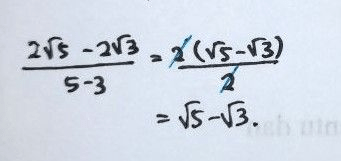 (2√5 - 2√3)/(5-3) = 2(√5-√3)/2
= √5-√3.